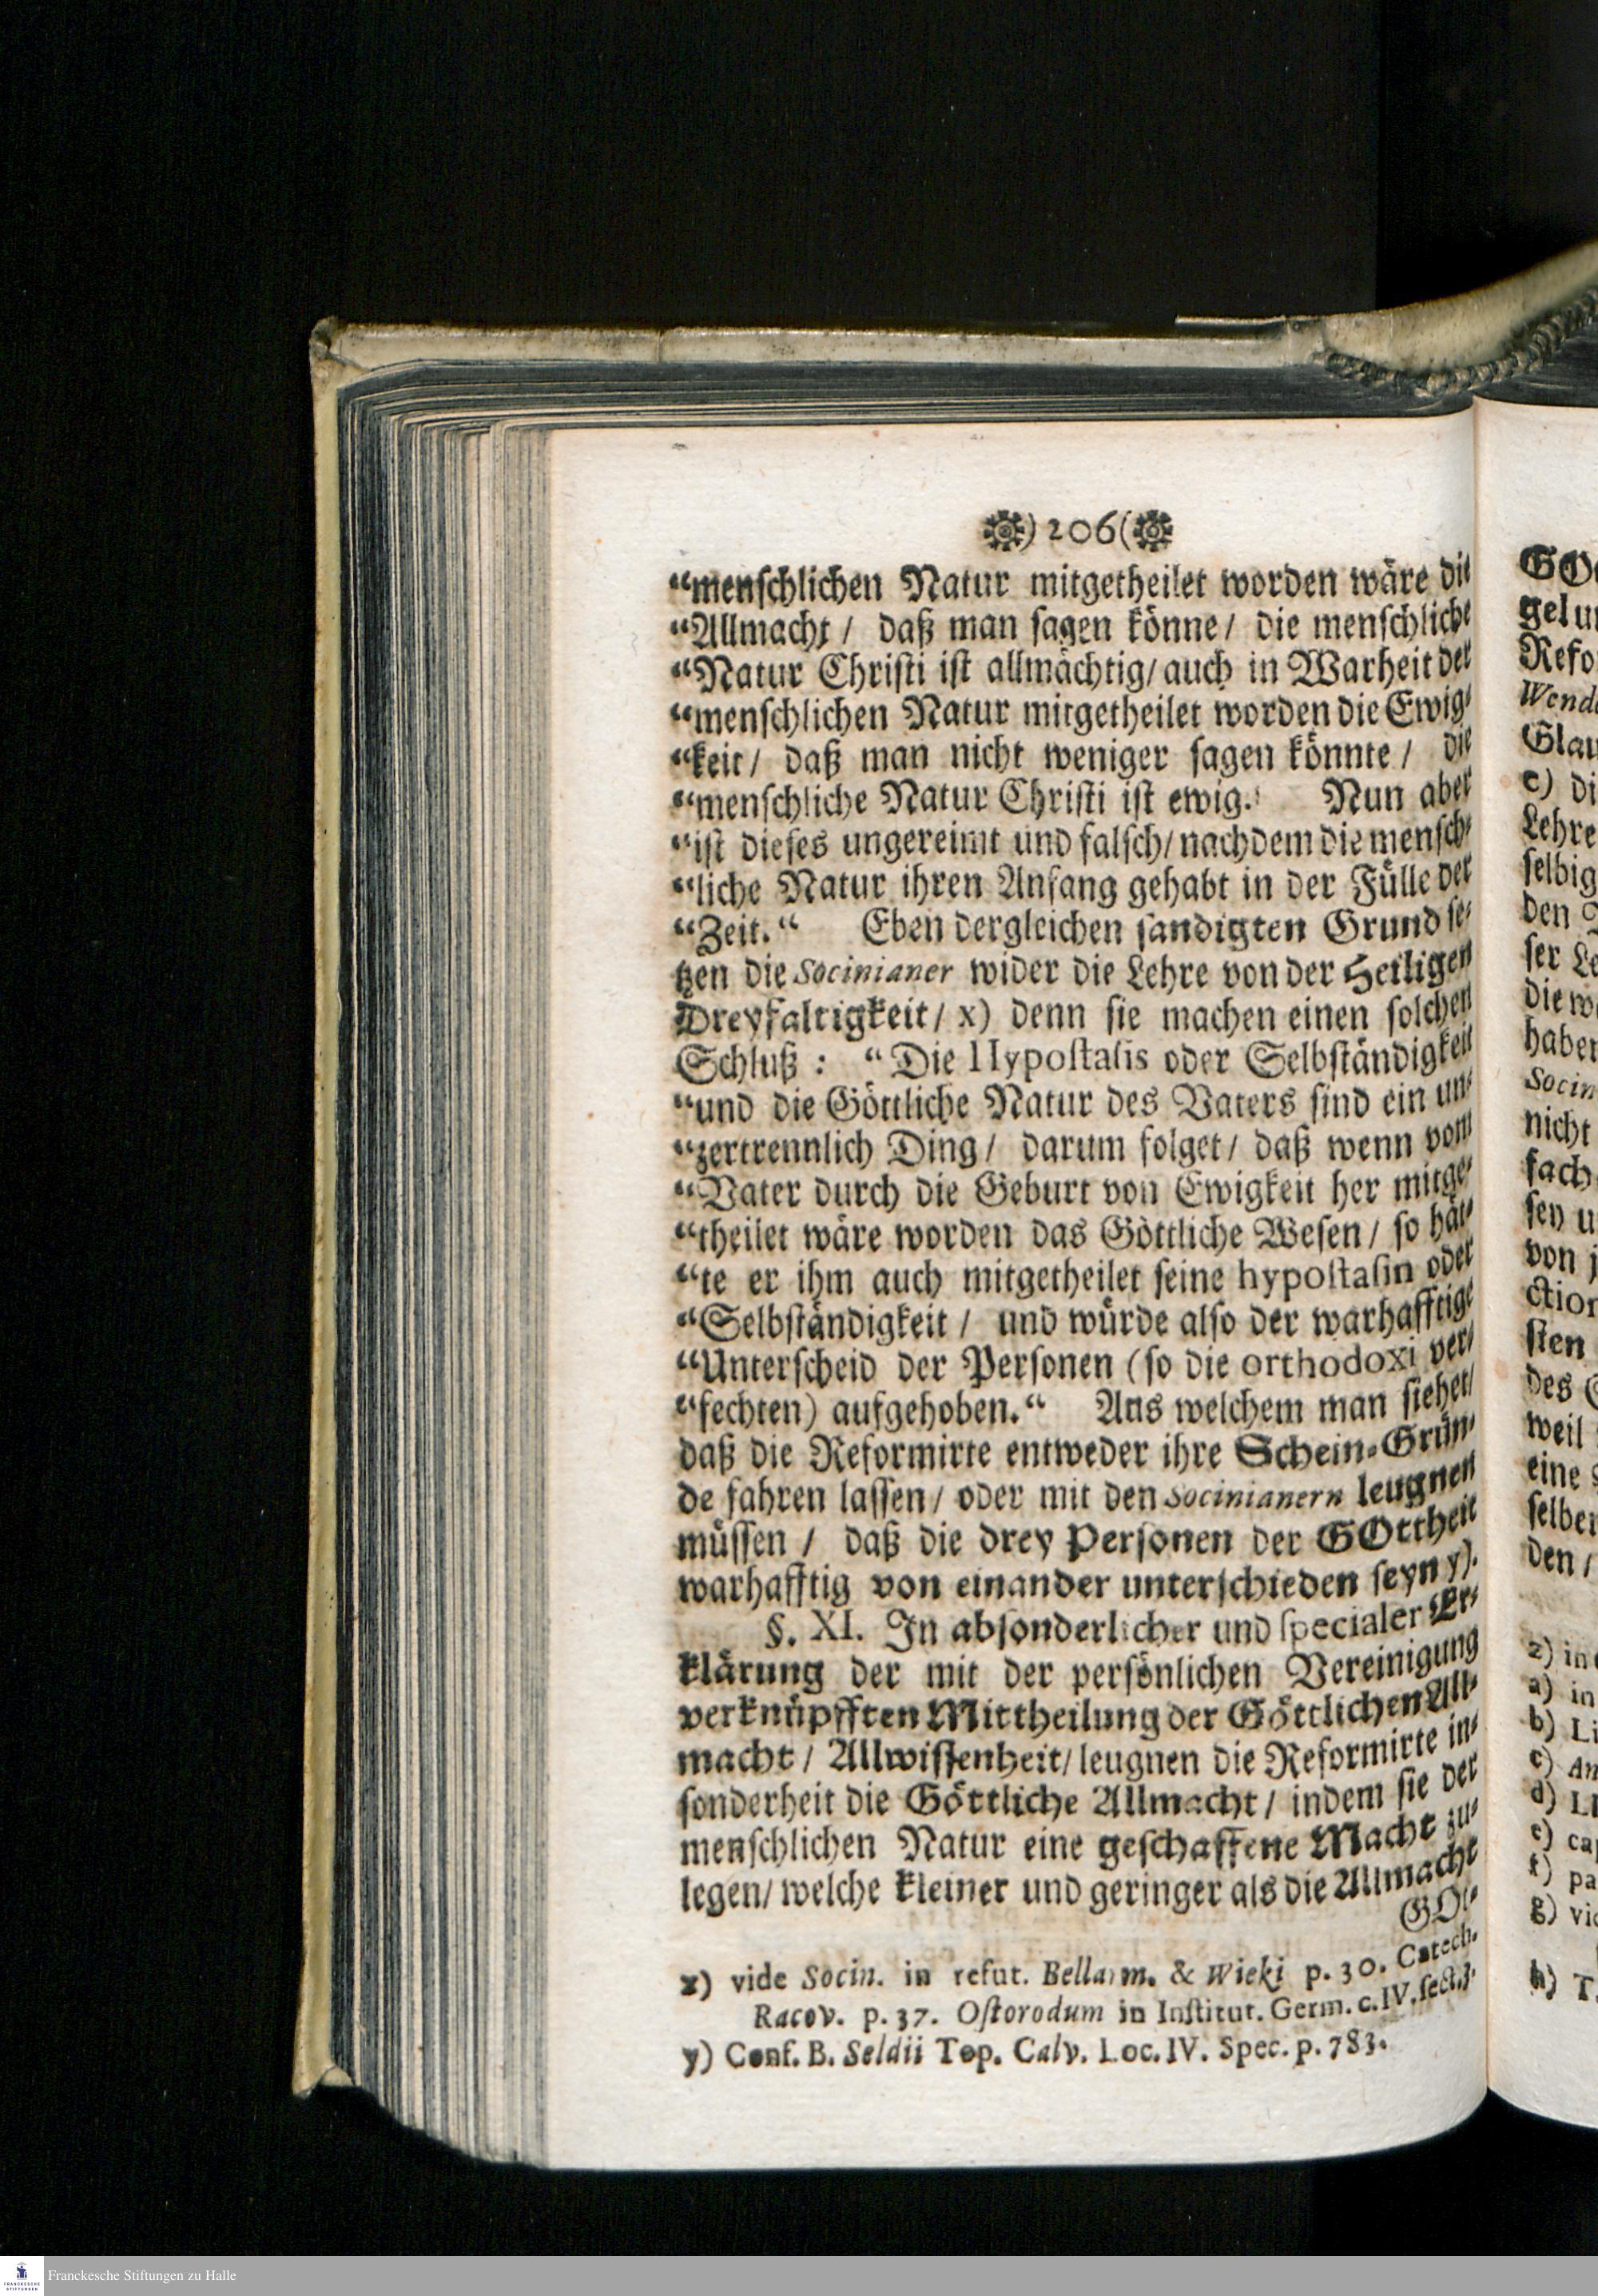 )206(
“menſchlichen Natur mitgetheilet worden wäre die
“Allmacht / daß man ſagen könne / die menſchliche
“Natur Chriſti iſt allmächtig / auch in Warheit der
“menſchlichen Natur mitgetheilet worden die Ewig-
“keit / daß man nicht weniger ſagen könnte / die
“menſchliche Natur Chriſti iſt ewig. Nun aber
“iſt dieſes ungereimt und falſch / nachdem die menſch-
“liche Natur ihren Anfang gehabt in der Fülle der
“Zeit.“ Eben dergleichen ſandigten Grund ſe-
tzen die Socinianer wider die Lehre von der Heiligen
Dreyfaltigkeit / x) denn ſie machen einen ſolchen
Schluß : “Die Hypoſtaſis oder Selbſtändigkeit
“und die Göttliche Natur des Vaters ſind ein un-
“zertrennlich Ding / darum folget / daß wenn vom
“Vater durch die Geburt von Ewigkeit her mitge-
“theilet wäre worden das Göttliche Weſen / ſo hät-
“te er ihm auch mitgetheilet ſeine hypoſtaſin oder
“Selbſtändigkeit / und würde alſo der warhafftige
“Unterſcheid der Perſonen (ſo die orthodoxi ver-
“fechten) aufgehoben.“ Aus welchem man ſiehet /
daß die Reformirte entweder ihre Schein-Grün-
de fahren laſſen / oder mit den Socinianern leugnen
müſſen / daß die drey Perſonen der GOttheit
warhafftig von einander unterſchieden ſeyn y).
§. XI. In abſonderlicher und ſpecialer Er-
klärung der mit der perſönlichen Vereinigung
verknüpfften Mittheilung der Göttlichen All-
macht / Allwiſſenheit / leugnen die Reformirte in-
ſonderheit die Göttliche Allmacht / indem ſie der
menſchlichen Natur eine geſchaffene Macht zu-
legen / welche kleiner und geringer als die Allmacht
x) vide Socin. in refut. Bellarm. & Wieki p. 30. Catech.
Racov. p. 37. Oſtorodum in Inſtitut. Germ. c. IV. ſect. 3.
y) Conf. B. Seldii Top. Calv. Loc. IV. Spec. p. 783.
GO
gel
Refo
Wend
Glau
c) di
Lehre
ſelbig
den
ſer Le
die w
haben
Socin
nicht
fach
ſey u
von j
ction
ſten
des
weil
eine
ſelben
den /
z) in
a) in
b) Li
c) An
d) LI
e) ca
f) pa
g) vi
h) T.
Franckesche Stiftungen zu Halle
FRANCKESCHE
STIFTUNGEN